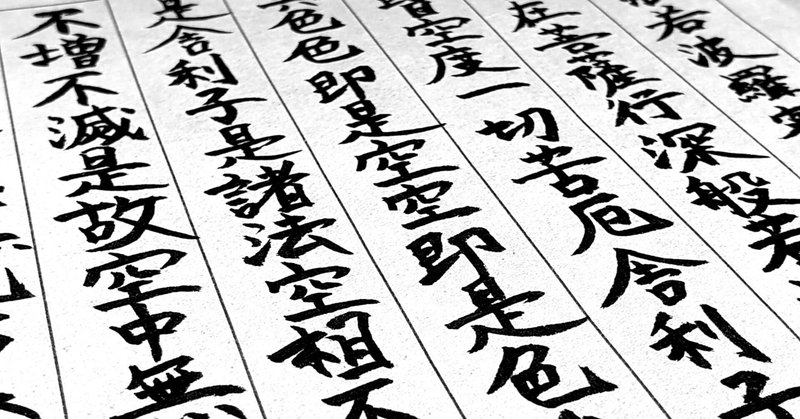 若波羅
在菩薩行深般若
皆空度一切苦厄舎利子
色色即是空空即是色
是舎利子是諸法空相不
不増不減是故空中無